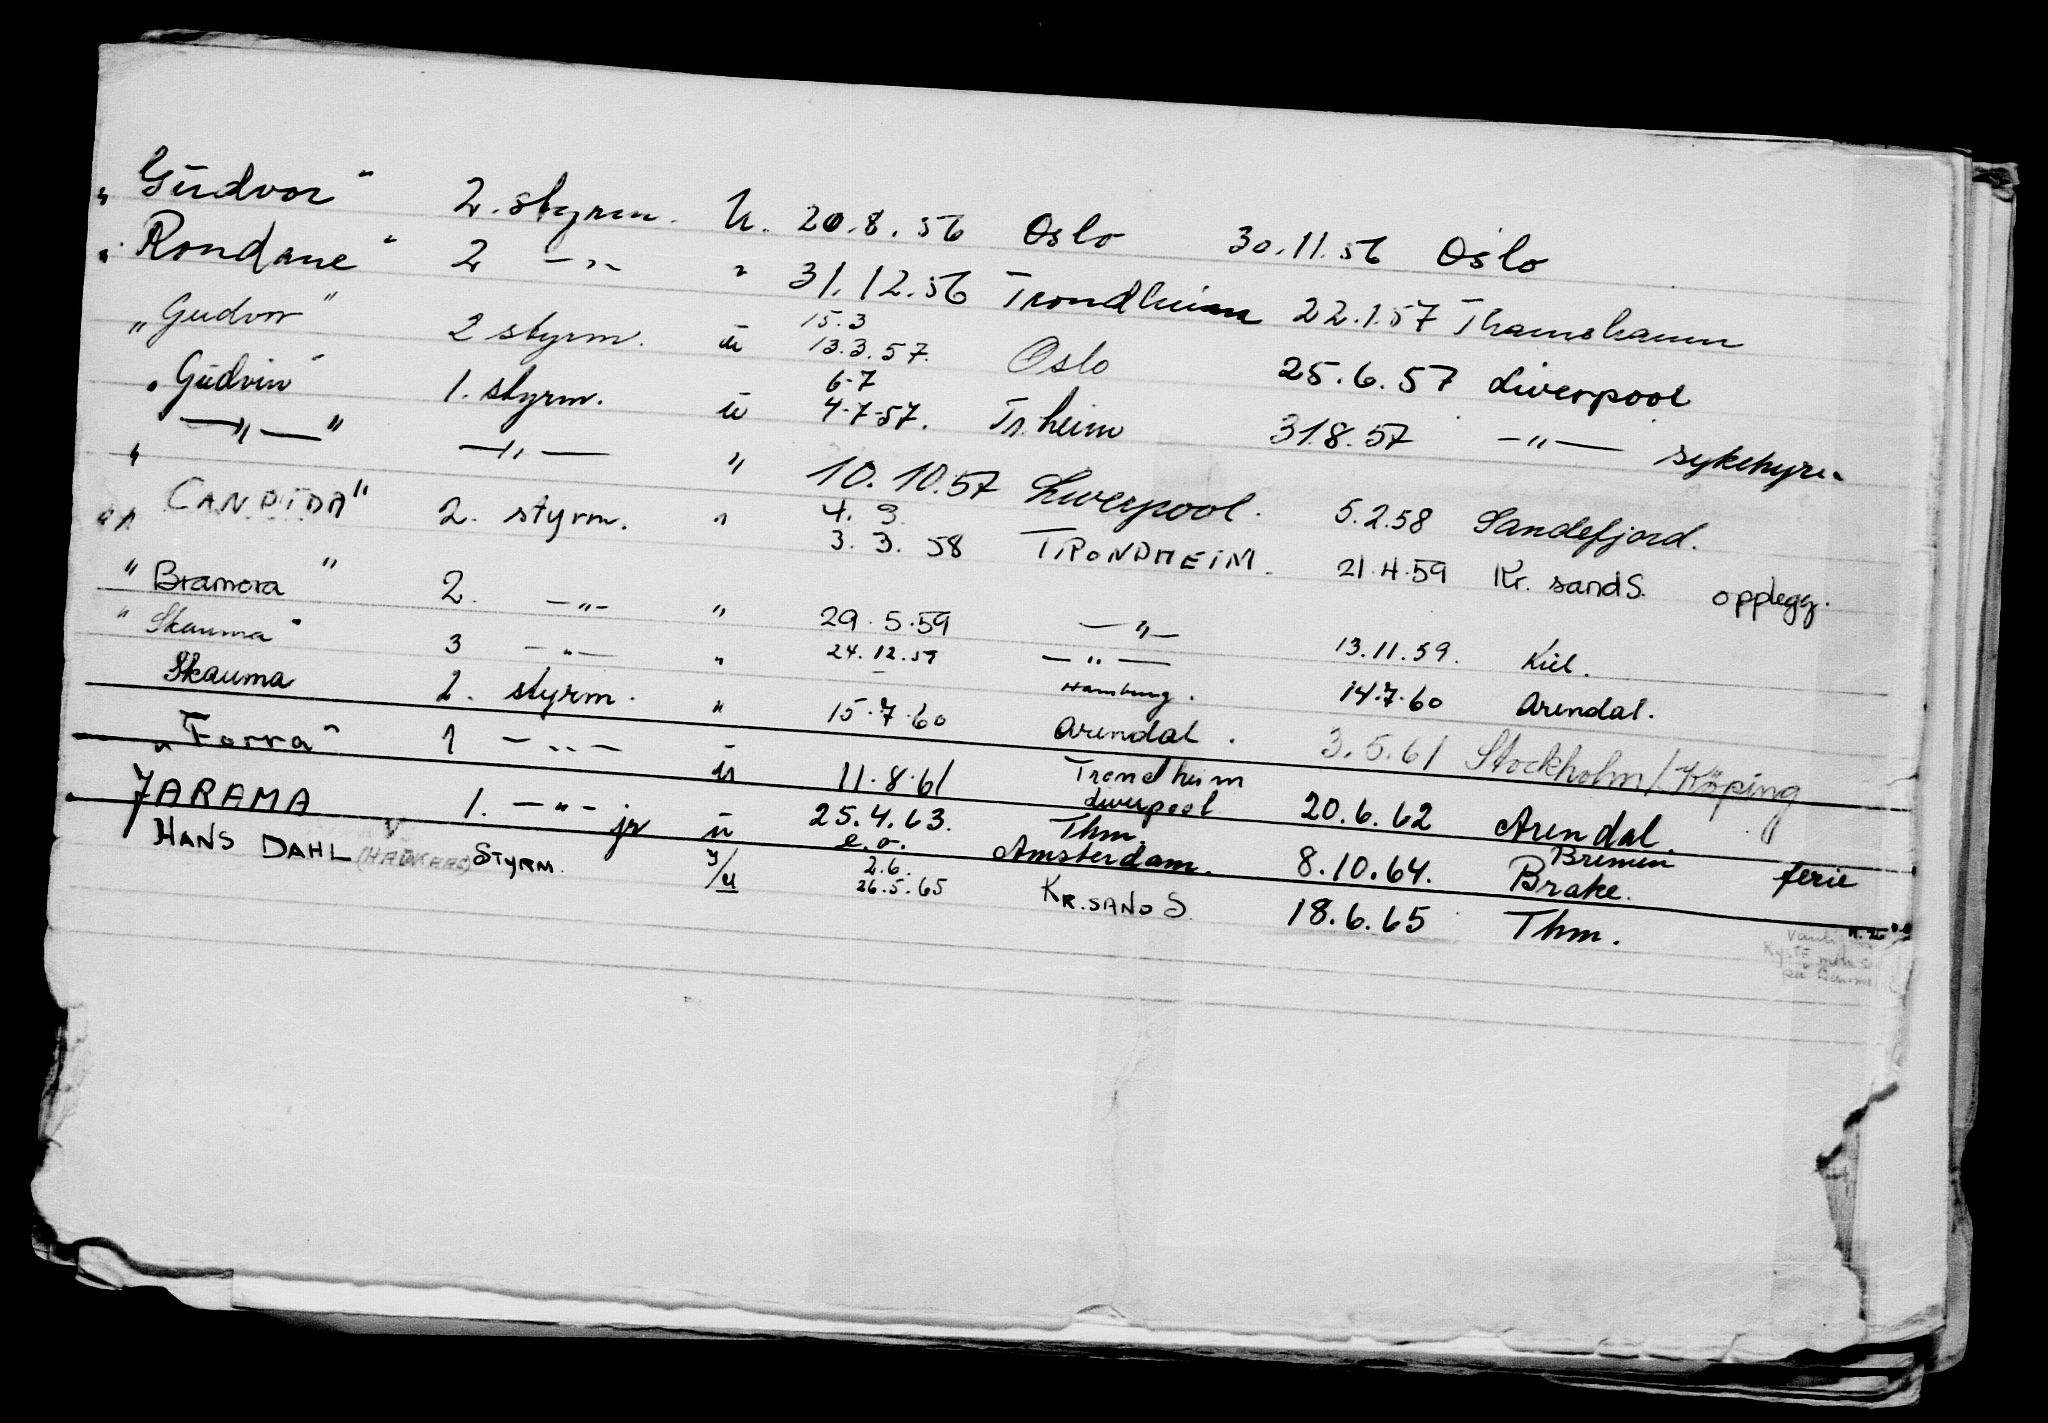 "Gudvor" 2. styrm. u. 20.8.56 Oslo 30.11.56 Oslo
"Rondane" 2 —"— " 31.12.56 Trondheim 22.1.57 Thamshamn
"Gudvor" 2 styrm. u 15.3 13.3.57. Oslo 25.6.57 Liverpool
"Gudvin" 1. styrm. u 6-7 4-7-57. Tr.heim 31.8.57 —"— sykehyre
" —"— " —"— " 10.10.57 Liverpool. 5.2.58 Sandefjord.
" CANDIDA" 2. styrm. " 4. 3. 3. 3. 58 TRONDHEIM. 21.4.59 Kr. sand S. opplegg.
"Bramora" 2. —"— " 29.5.59 —"— 13.11.59. Kiel.
"Skauma" 3 —"— " 24.12.59 —"— 14.7.60 Arendal.
Skauma 2. styrm. " 15.7.60 Hamburg. Arendal. 3.5.61 Stockholm/Köping
"Forra" 1 —"— u 11.8.61 Trondheim 20.6.62 Arendal.
JARAMA 1. —"— jr u 25.4.63. e.o. Liverpool Thm. Amsterdam. 8.10.64. Bremen Brake. ferie
HANS DAHL STYRM. y/u 2.6. 26.5.65 KR.SAND S. 18.6.65 Thm.